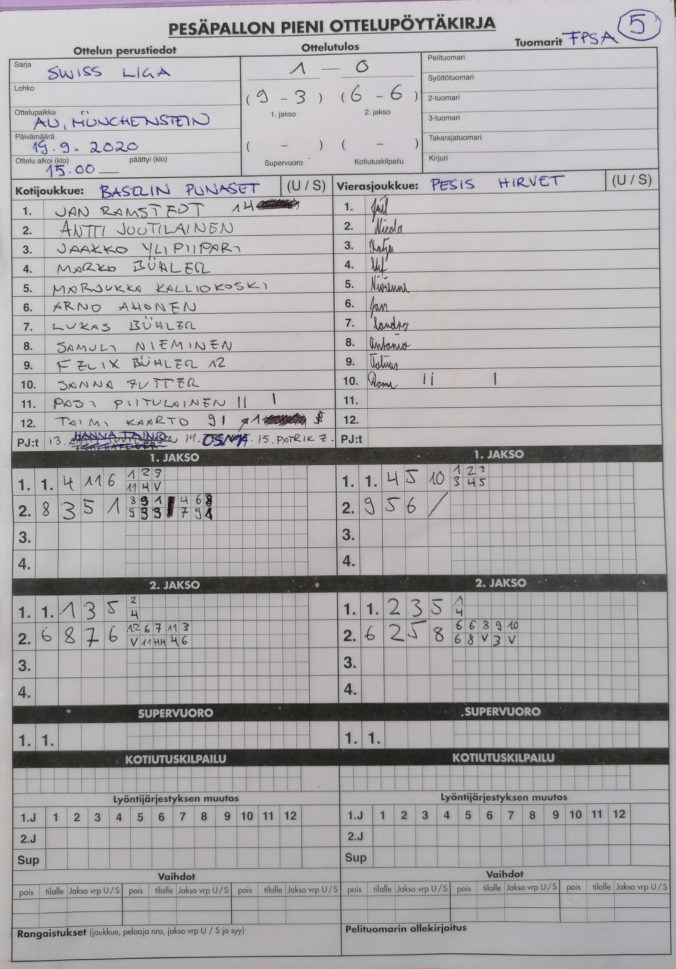 PESÄPALLON PIENI OTTELUPÖYTÄKIRJA
5
Ottelun perustiedot Ottelutulos Tuomarit FPSA
Sarja SWISS LIGA 1 – 0 Pelituomari
Lohko (9 - 3) (6 - 6) Syöttötuomari
1. jakso 2. jakso 2-tuomari
Ottelupaikka AU, MÜNCHENSTEIN 3-tuomari
Päivämäärä 19.9.2020 ( - ) ( - ) Takarajatuomari
Ottelu alkoi (klo) 15.00 päättyi (klo) Supervuoro Kotiutuskilpailu Kirjuri
Kotijoukkue: BASELIN PUNASET (U / S) Vierasjoukkue: PESIS HIRVET (U / S)
1. JAN RAMSTEDT 14 1.
2. ANTTI JUUTILAINEN 2. Nicola
3. JAAKKO YLIPIIPARI 3. Katja
4. MARKO BÜHLER 4.
5. MARJUKKA KALLIOKOSKI 5.
6. ARNO AHONEN 6. Jan
7. LUKAS BÜHLER 7. Sandro
8. SAMULI NIEMINEN 8. Antonio
9. FELIX BÜHLER 12 9. Tobias
10. SANNA ZUTTER 10. II I
11. PASI PIITULAINEN II I 11.
12. TAIMI KAARTO 91 12.
PJ:t 13. HANNA TAINIO 14. 15. PATRIK Z. PJ:t
1. JAKSO 1. JAKSO
1. 1. 4 11 6 1. 1. 4 5 10 1 2 3
3 4 5
2. 8 3 5 1 2. 9 5 6 /
3. 3.
4. 4.
2. JAKSO 2. JAKSO
1. 1. 1 3 5 2 1. 1. 2 3 5 1
4 4
2. 6 8 7 6 12 6 7 11 3 2. 6 2 5 8 6 6 8 9 10
V 11 4 4 4 6 6 8 V 3 V
3. 3.
4. 4.
SUPERVUORO SUPERVUORO
1. 1. 1. 1.
KOTIUTUSKILPAILU KOTIUTUSKILPAILU
Lyöntijärjestyksen muutos Lyöntijärjestyksen muutos
1.J 1 2 3 4 5 6 7 8 9 10 11 12 1.J 1 2 3 4 5 6 7 8 9 10 11 12
2.J 2.J
Sup Sup
Vaihdot Vaihdot
pois tilalle Jakso vrp U / S pois tilalle Jakso vrp U / S pois tilalle Jakso vrp U / S pois tilalle Jakso vrp U / S pois tilalle Jakso vrp U / S pois tilalle Jakso vrp U / S
Rangaistukset (joukkue, pelaaja nro, jakso vrp U / S ja syy) Pelituomarin allekirjoitus